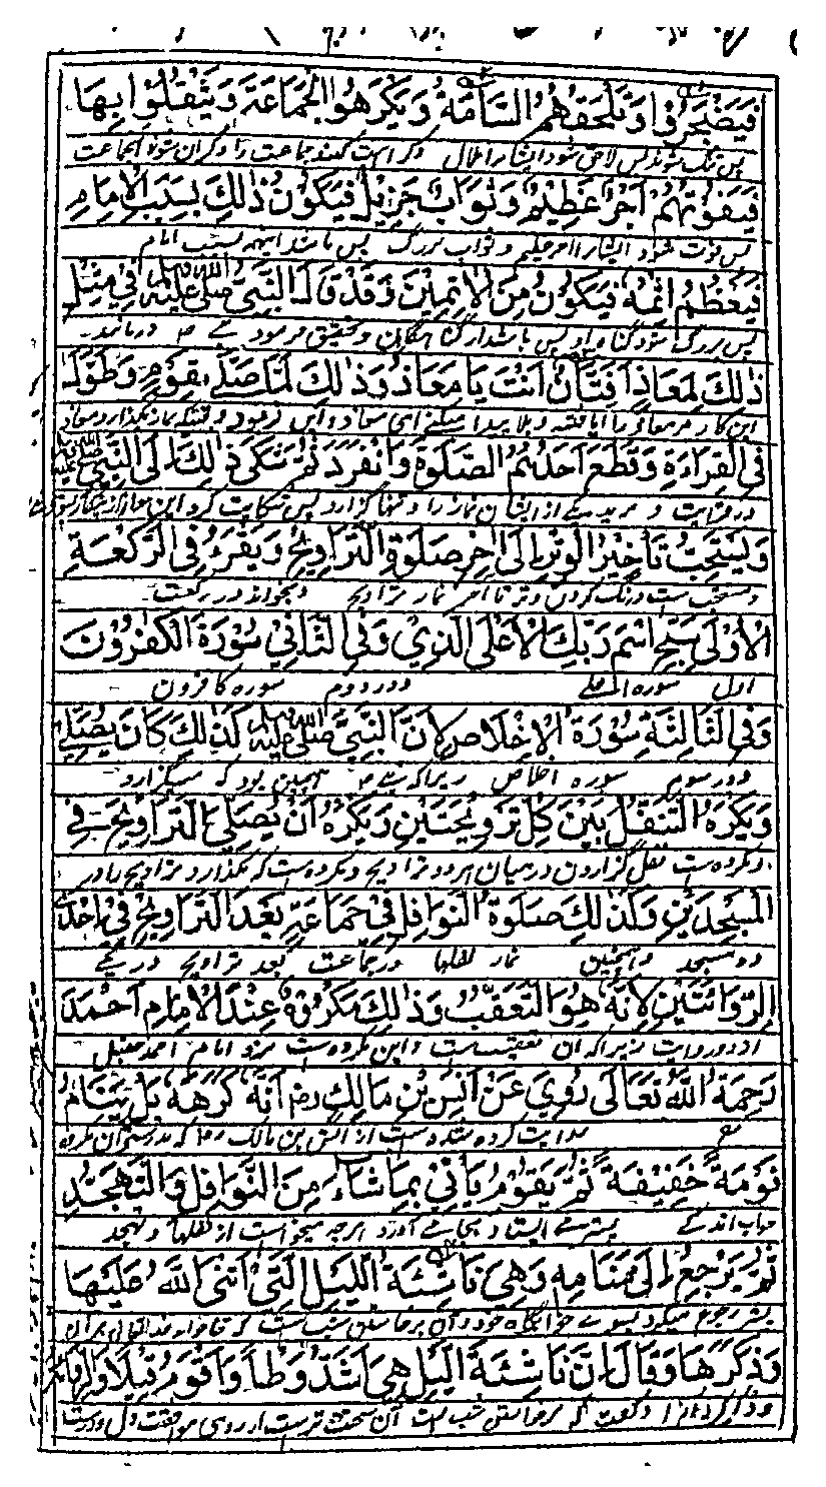 فَيَضْجَرُوْا وَتَلْحَقُهُمُ السَّآمَةُ وَيَكْرَهُوا الْجَمَاعَةَ وَيَثْقُلُوْا بِهَا
پس تنگ شوند پس لاحق شود ایشانرا ملال وکراهت کنند جماعت را وگران شوند بجماعت
فَيَفُوْتُهُمْ اَجْرٌ عَظِيْمٌ وَثَوَابٌ جَزِيْلٌ فَيَكُوْنُ ذٰلِكَ بِسَبَبِ الْاِمَامِ
پس فوت شود ایشانرا اجر عظیم وثواب بزرگ پس باشد اینهمه بسبب امام
فَيَعْظُمُ اِثْمُهٗ فَيَكُوْنُ مِنَ الْاٰثِمِيْنَ وَقَدْ قَالَ النَّبِيُّ صَلَّى اللهُ عَلَيْهِ فِيْ مِثْلِ
پس بزرگ شود گناه او پس باشد از گناهگاران وتحقیق فرمود در مانند
ذٰلِكَ لِمُعَاذٍ اَفَتَّانٌ اَنْتَ يَا مُعَاذُ وَذٰلِكَ لَمَّا صَلّٰى بِقَوْمٍ وَطَوَّلَ
این کار مر معاذ را آیا فتنه وبلا پیدا میکنی ای معاذ واین فرمود وقتیکه نماز بگذارد معاذ
فِي الْقِرَاءَةِ وَقَطَعَ اَحَدُهُمُ الصَّلٰوةَ وَانْفَرَدَ ثُمَّ شَكٰى ذٰلِكَ اِلَى النَّبِيِّ صلى الله عليه
در قراءت و برید یکے از ایشان نماز را وتنها گزارد پس شکایت کرد این
وَيَسْتَحِبُّ تَأْخِيْرُ الْوِتْرِ اِلٰى اٰخِرِ صَلٰوةِ التَّرَاوِيْحِ وَيَقْرَءُ فِي الرَّكْعَةِ
ومستحب ست درنگ کردن وتر تا آخر نماز تراویح وبخواند در رکعت
الْاُوْلٰى سَبِّحِ اسْمَ رَبِّكَ الْاَعْلَى الَّذِيْ وَفِي الثَّانِيْ سُوْرَةَ الْكٰفِرُوْنَ
اول سوره الاعلے ودر دوم سوره کافرون
وَفِي الثَّالِثَةِ سُوْرَةَ الْاِخْلَاصِ لِاَنَّ النَّبِيَّ صَلَّى اللهُ عَلَيْهِ كَذٰلِكَ كَانَ يُصَلِّيْ
ودر سوم سوره اخلاص زیراکه همچنین بود که میگزارد
وَيُكْرَهُ التَّنَفُّلُ بَيْنَ كُلِّ تَرْوِيْحَتَيْنِ وَيُكْرَهُ اَنْ يُّصَلِّيَ التَّرَاوِيْحَ فِيْ
ومکروه ست نفل گزاردن درمیان هر دو تراویح ومکروه ست که بگذارد تراویح را در
الْمَسْجِدَيْنِ وَكَذٰلِكَ صَلٰوةُ النَّوَافِلِ فِيْ جَمَاعَةٍ بَعْدَ التَّرَاوِيْحِ فِيْ اِحْدَى
دو مسجد وهمچنین نماز نفلها در جماعت بعد تراویح در یکے
الرِّوَايَتَيْنِ لِاَنَّهٗ هُوَ التَّعَقُّبُ وَذٰلِكَ مَكْرُوْهٌ عِنْدَ الْاِمَامِ اَحْمَدَ
از دو روایت زیراکه آن تعقیب ست واین مکروه ست نزد امام احمد حنبل
رَحِمَهُ اللهُ تَعَالٰى رُوِيَ عَنْ اَنَسِ بْنِ مَالِكٍ رض اَنَّهٗ كَرِهَهٗ بَلْ يَنَامُ
روایت کرده شده ست از انس بن مالک رض که بدرستی آن مکروه
نَوْمَةً خَفِيْفَةً ثُمَّ يَقُوْمُ يَأْتِيْ بِمَا شَاءَ مِنَ النَّوَافِلِ وَالتَّهَجُّدِ
خواب اندکے پستر مے ایستد وبجا مے آورد هرچه میخواست از نفلها وتهجد
ثُمَّ يَرْجِعُ اِلٰى مَنَامِهٖ وَهِيَ نَاشِئَةُ اللَّيْلِ الَّتِيْ اَثْنَى اللهُ عَلَيْهَا
پستر رجوع میکرد بسوے خوابگاه خود وآن برخاستن شب ست که
وَذَكَرَهَا وَقَالَ اِنَّ نَاشِئَةَ الَّيْلِ هِيَ اَشَدُّ وَطْأً وَاَقْوَمُ قِيْلًا
وذکر کرد آنرا وگفت که برخواستن شب ست آن سخت ترست از روی موافقت دل